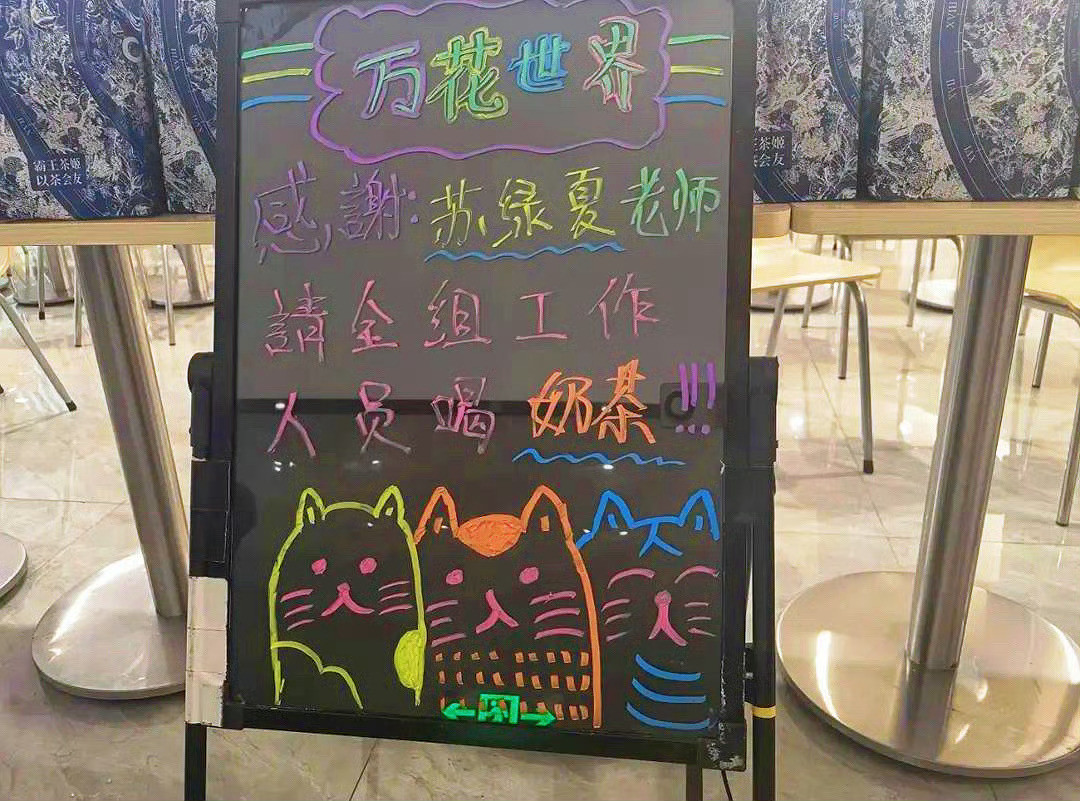 万花世界
感謝:苏绿夏老师
請全组工作
人员喝奶茶!!!
霸王茶姬
以茶会友
茶姬
茶会友